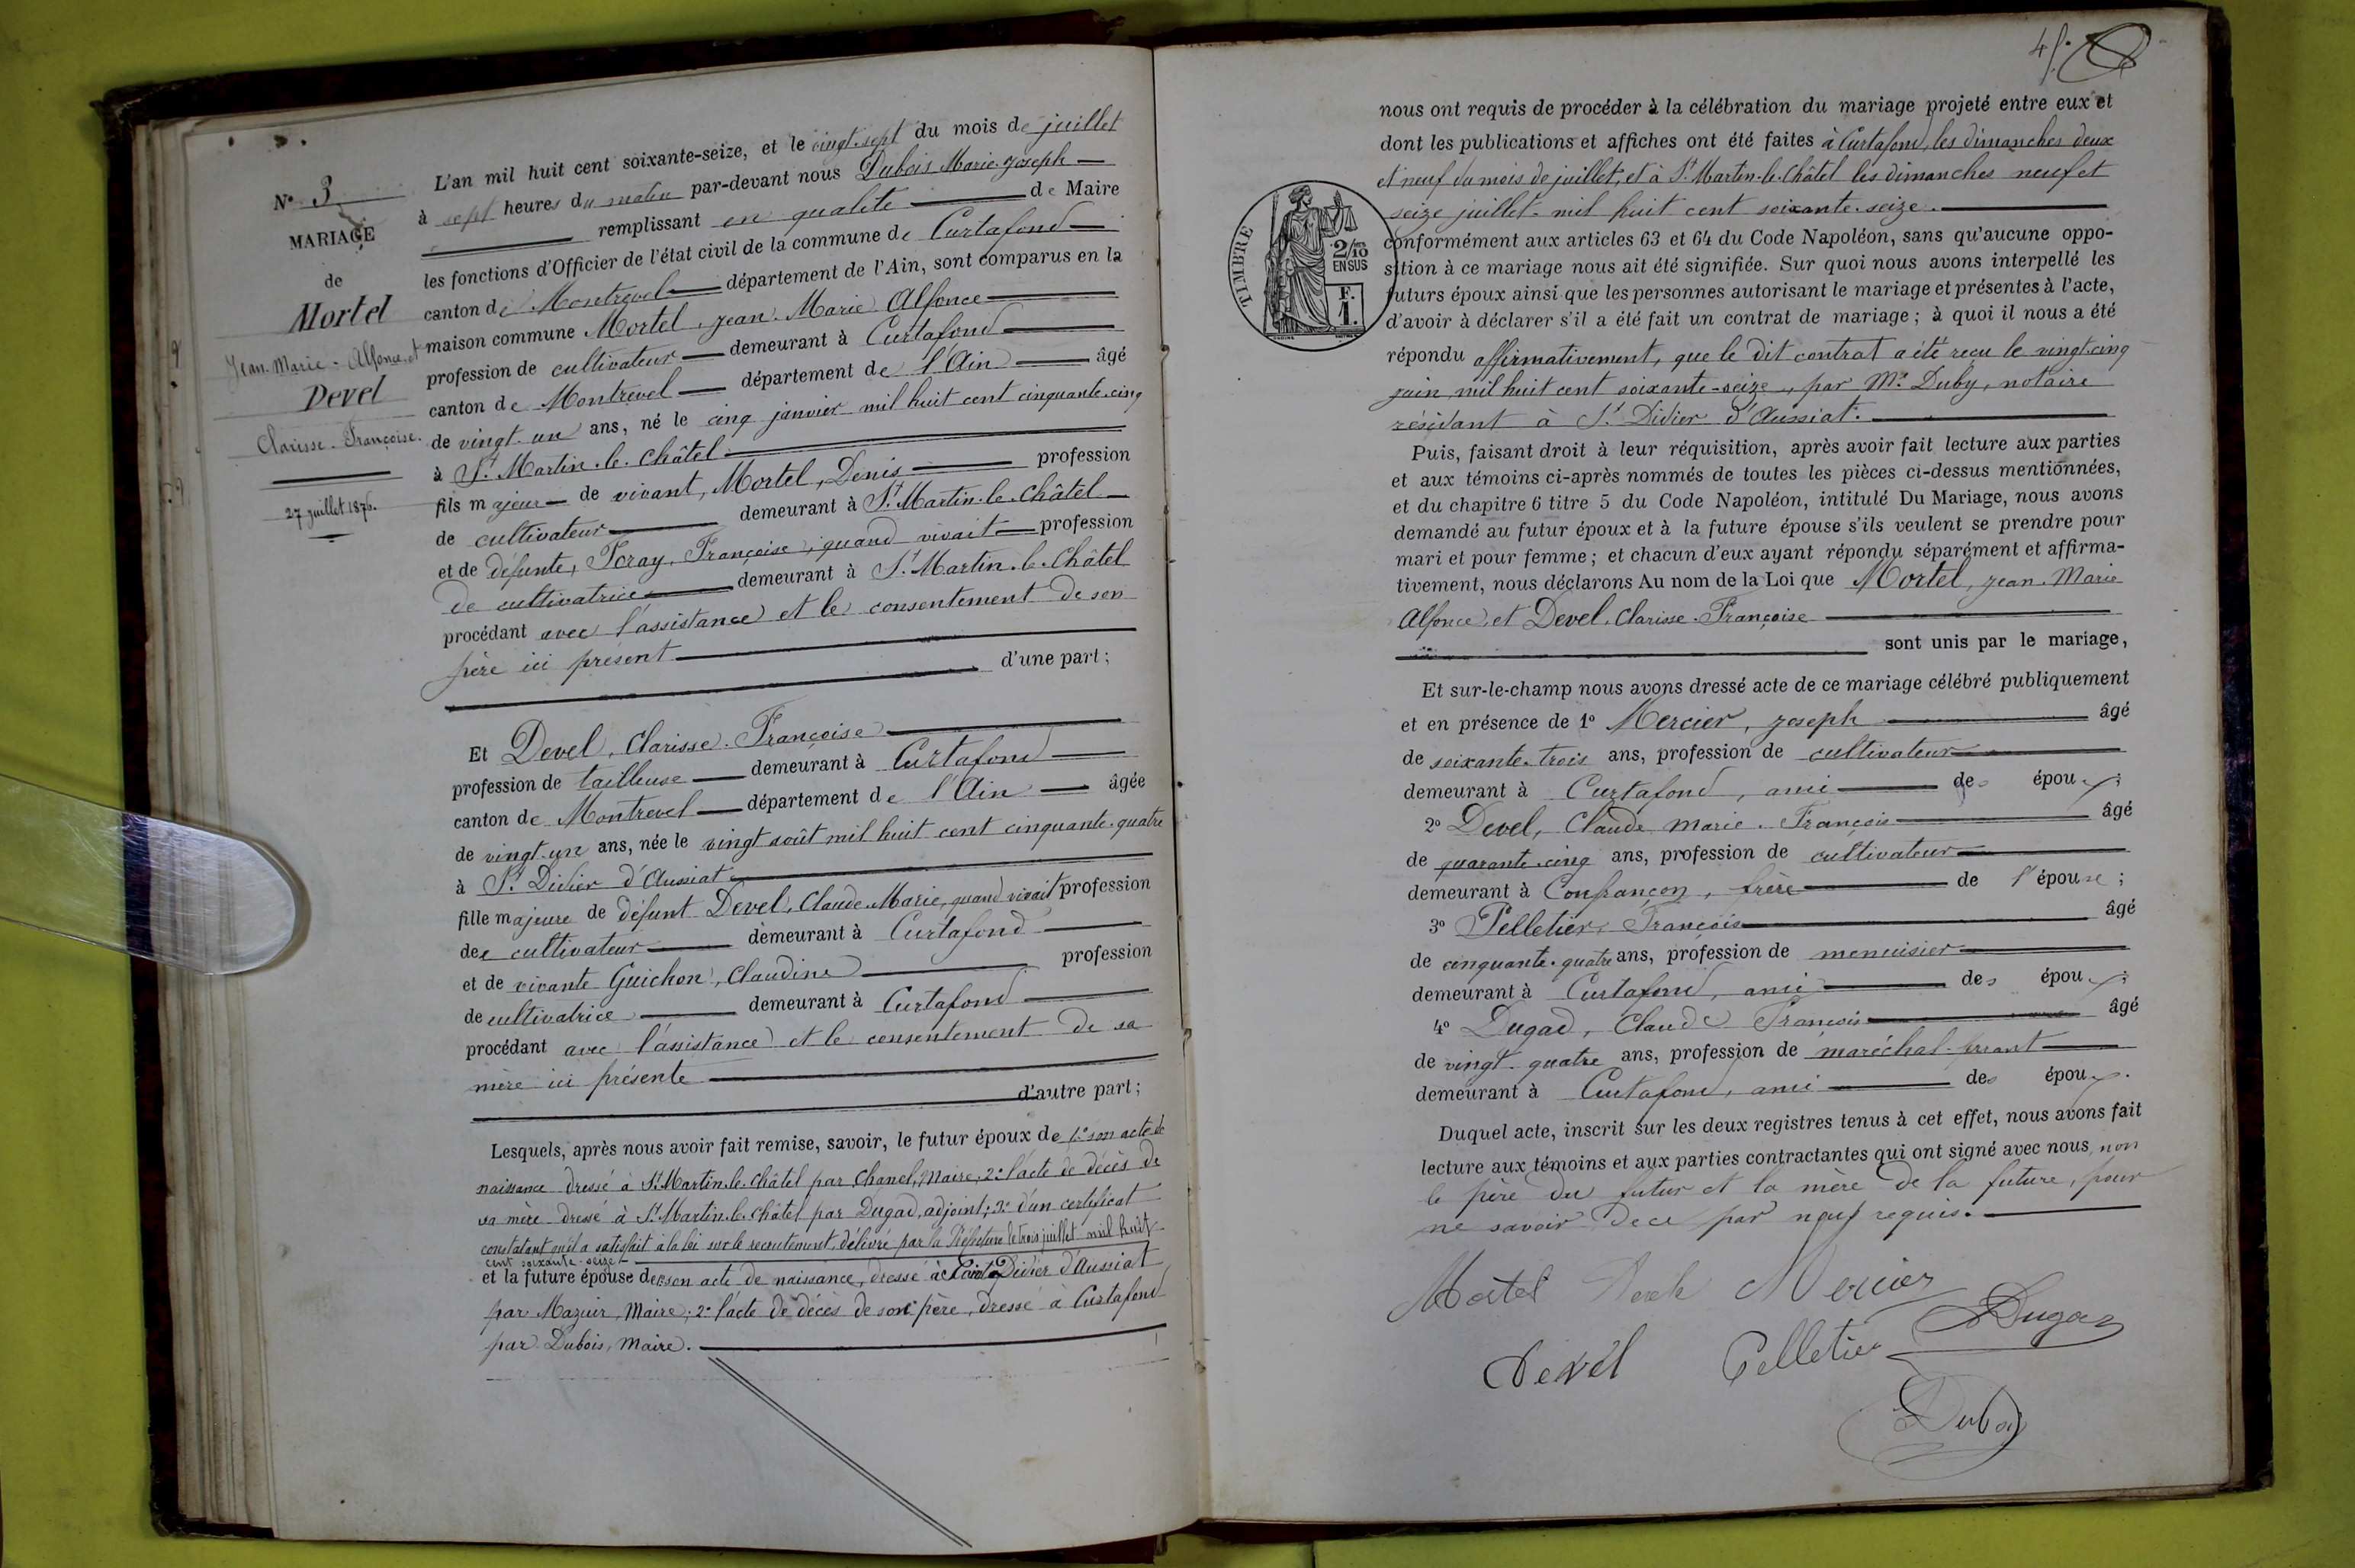 Nº 3
MARIAGE
de
Mortel
Jean-Marie-Alfonce, et
Devel
Clarisse-Françoise.
27 juillet 1876.
L'an mil huit cent soixante-seize, et le vingt-sept du mois de juillet
à sept heures du matin par-devant nous Dubois Marie-Joseph
remplissant en qualité de Maire
les fonctions d'Officier de l'état civil de la commune de Curtafond
canton de Montrevel département de l'Ain, sont comparus en la
maison commune Mortel, Jean-Marie Alfonce
profession de cultivateur demeurant à Curtafond
canton de Montrevel département de l'Ain âgé
de vingt-un ans, né le cinq janvier mil huit cent cinquante-cinq
à St Martin-le-Châtel
fils majeur de vivant, Mortel, Denis profession
de cultivateur demeurant à St Martin-le-Châtel
et de défunte, Feray, Françoise, quand vivait profession
de cultivatrice demeurant à St Martin-le-Châtel
procédant avec l'assistance et le consentement de son
père ici présent
d'une part;
Et Devel, Clarisse-Françoise
profession de tailleuse demeurant à Curtafond
canton de Montrevel département de l'Ain âgée
de vingt-un ans, née le vingt août mil huit cent cinquante-quatre
à St Didier d'Aussiat
fille majeure de défunt Devel, Claude-Marie, quand vivait profession
de cultivateur demeurant à Curtafond
et de vivante Guichon, Claudine profession
de cultivatrice demeurant à Curtafond
procédant avec l'assistance et le consentement de sa
mère ici présente
d'autre part;
Lesquels, après nous avoir fait remise, savoir, le futur époux de 1º son acte de
naissance dressé à St Martin-le-Châtel par Chanel, Maire; 2º l'acte de décès de
sa mère dressé à St Martin-le-Châtel par Dugad, adjoint; 3º d'un certificat
constatant qu'il a satisfait à la loi sur le recrutement, délivré par la Préfecture le trois juillet mil huit
cent soixante-seize
et la future épouse de son acte de naissance, dressé à Saint Didier d'Aussiat
par Mazuir, Maire; 2º l'acte de décès de son père, dressé à Curtafond
par Dubois, Maire.
45
nous ont requis de procéder à la célébration du mariage projeté entre eux et
dont les publications et affiches ont été faites à Curtafond, les dimanches deux
et neuf du mois de juillet, et à St Martin-le-Châtel les dimanches neuf et
seize juillet mil huit cent soixante-seize.
TIMBRE
2/10 EN SUS
F. 1.
conformément aux articles 63 et 64 du Code Napoléon, sans qu'aucune oppo-
sition à ce mariage nous ait été signifiée. Sur quoi nous avons interpellé les
futurs époux ainsi que les personnes autorisant le mariage et présentes à l'acte,
d'avoir à déclarer s'il a été fait un contrat de mariage; à quoi il nous a été
répondu affirmativement, que le dit contrat a été reçu le vingt-cinq
juin mil huit cent soixante-seize, par Me Duby, notaire
résidant à St Didier d'Aussiat.
Puis, faisant droit à leur réquisition, après avoir fait lecture aux parties
et aux témoins ci-après nommés de toutes les pièces ci-dessus mentionnées,
et du chapitre 6 titre 5 du Code Napoléon, intitulé Du Mariage, nous avons
demandé au futur époux et à la future épouse s'ils veulent se prendre pour
mari et pour femme; et chacun d'eux ayant répondu séparément et affirma-
tivement, nous déclarons Au nom de la Loi que Mortel, Jean-Marie
Alfonce, et Devel, Clarisse-Françoise
sont unis par le mariage,
Et sur-le-champ nous avons dressé acte de ce mariage célébré publiquement
et en présence de 1º Mercier, Joseph âgé
de soixante-trois ans, profession de cultivateur
demeurant à Curtafond, ami des époux;
2º Devel, Claude Marie-François âgé
de quarante-cinq ans, profession de cultivateur
demeurant à Confrançon, frère de l'épouse;
3º Pelletier, François âgé
de cinquante-quatre ans, profession de menuisier
demeurant à Curtafond, ami des époux;
4º Dugad, Claude François âgé
de vingt-quatre ans, profession de maréchal-ferrant
demeurant à Curtafond, ami des époux.
Duquel acte, inscrit sur les deux registres tenus à cet effet, nous avons fait
lecture aux témoins et aux parties contractantes qui ont signé avec nous, non
le père du futur et la mère de la future, pour
ne savoir de ce par nous requis.
Mortel Mercier
Dugad
Devel Pelletier
Dubois